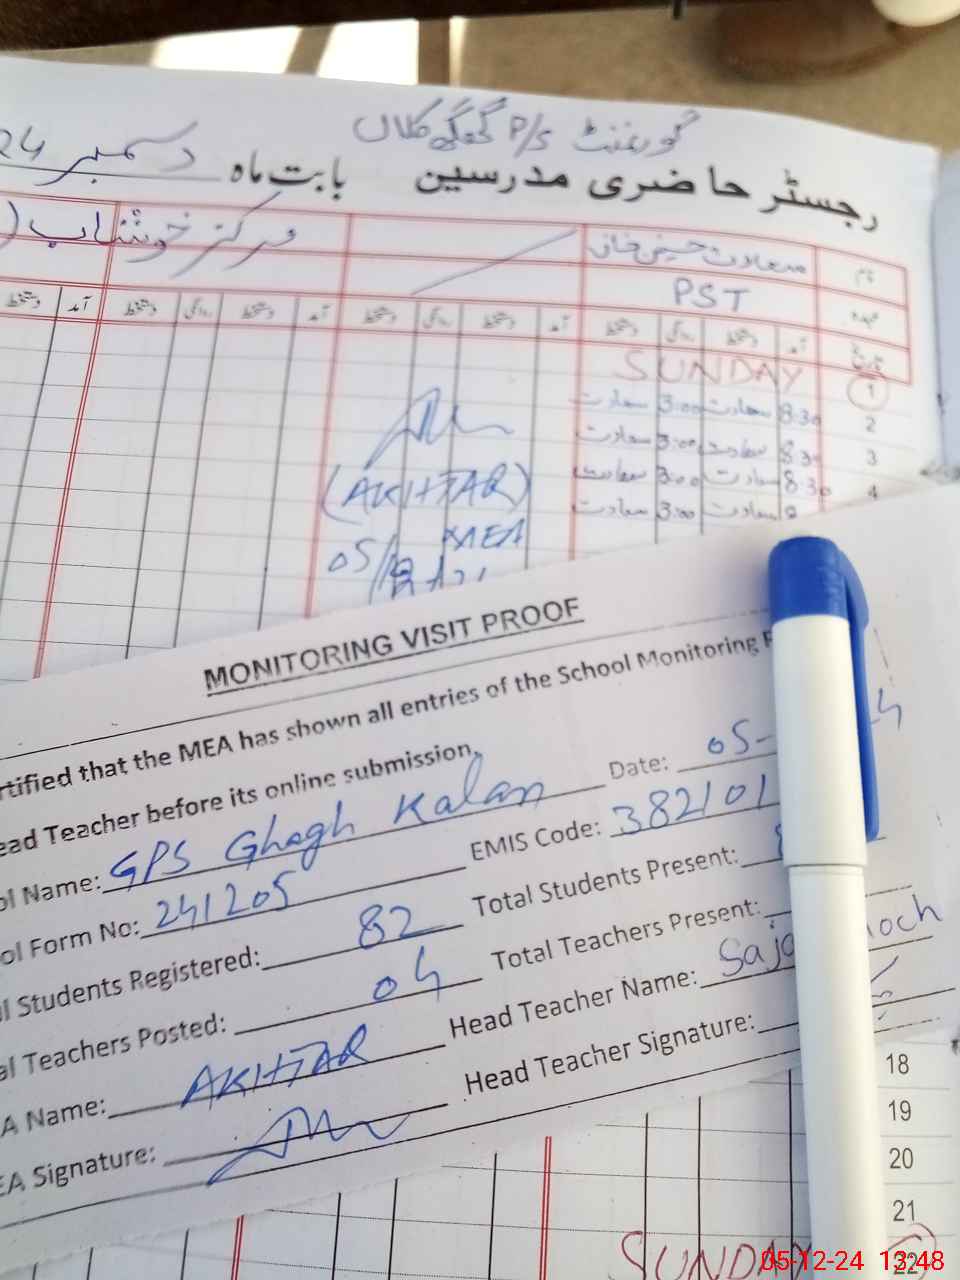 گورنمنٹ P/S گھگھ کلاں
رجسٹر حاضری مدرسین بابت ماہ دسمبر 24
نام سعادت حسین خان مرکز خوشاب (
عہدہ PST
تاریخ آمد دستخط روانگی دستخط آمد دستخط روانگی دستخط آمد دستخط روانگی دستخط آمد دستخط
1 SUNDAY
2 8:30 سعادت 3:00 سعادت
3 8:30 سعادت 3:00 سعادت
4 8:30 سعادت 3:00 سعادت
8 سعادت 3:00 سعادت
(AKHTAR)
MEA
05/12
MONITORING VISIT PROOF
rtified that the MEA has shown all entries of the School Monitoring F
ead Teacher before its online submission.
Date: 05-
ol Name: GPS Ghagh Kalan EMIS Code: 382101
ol Form No: 241205 Total Students Present: 8
l Students Registered: 82 Total Teachers Present:
al Teachers Posted: 04 Head Teacher Name: Saja loch
A Name: AKHTAR Head Teacher Signature:
EA Signature:
18
19
20
21
SUNDAY 22
05-12-24 13:48